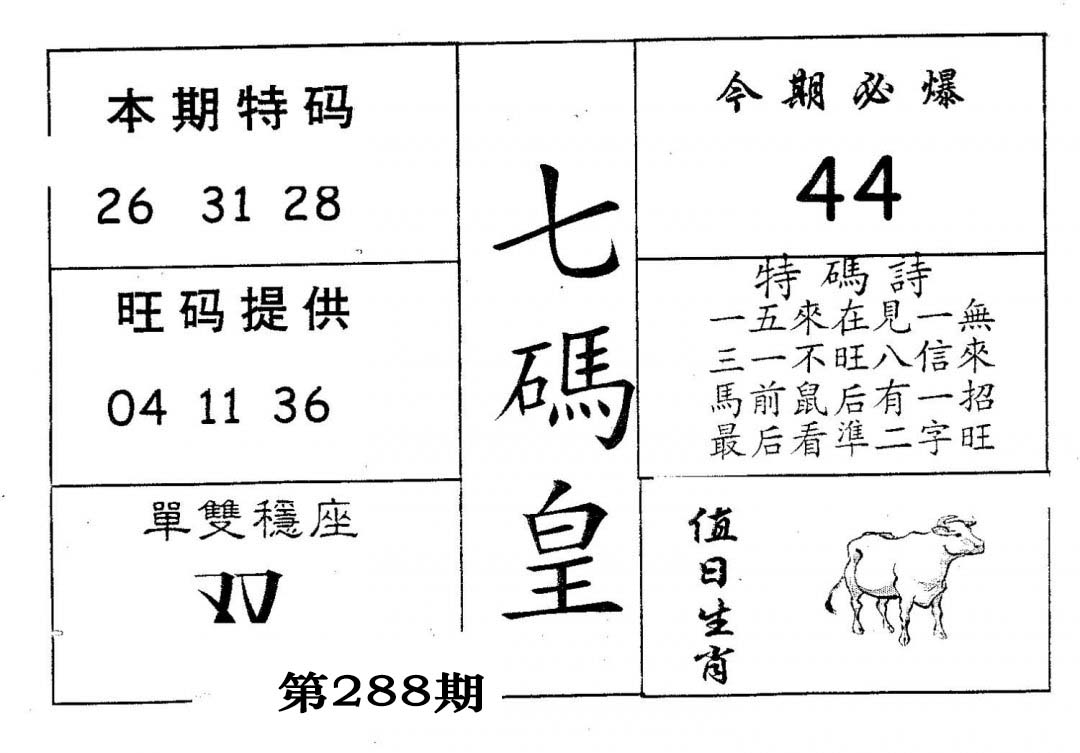 本期特码
26 31 28
旺码提供
04 11 36
單雙穩座
双
七碼皇
今期必爆
44
特碼詩
一五來在見一無
三一不旺八信來
馬前鼠后有一招
最后看準二字旺
值日生肖
第288期